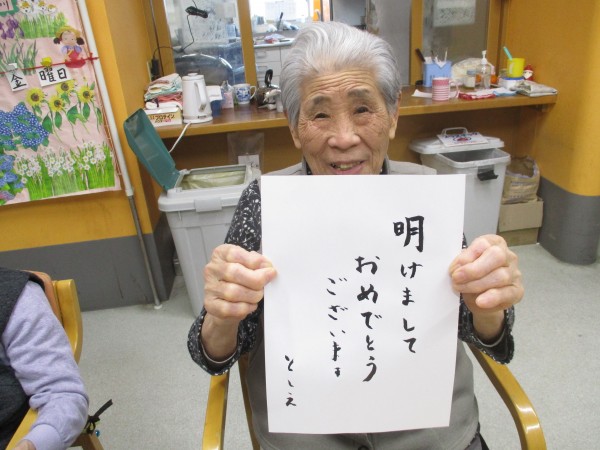 明けまして
おめでとう
ございます
としえ
金曜日